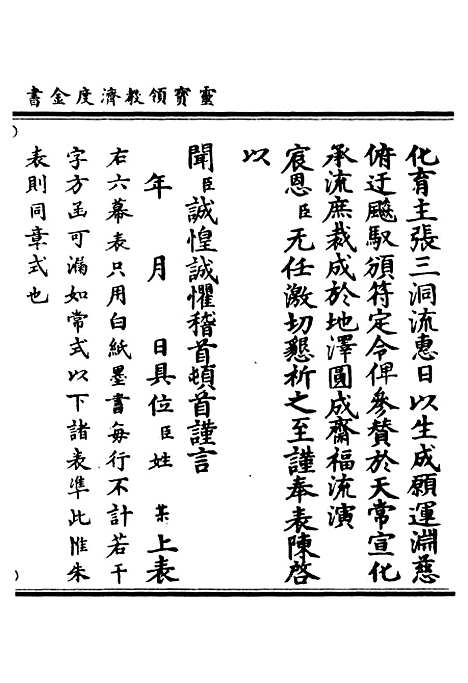 靈寳領敎濟度金書
化育主張三洞流惠日以生成願運淵慈
俯迂飈馭頒符定令俾參贊於天常宣化
承流庶裁成於地澤圓成齋福流演
宸恩臣无任激切懇祈之至謹奉表陳啓
以
聞臣誠惶誠懼稽首頓首謹言
年 月 日具位臣姓 某上表
右六幕表只用白紙墨書每行不計若干
字方函可漏如常式以下諸表準此惟朱
表則同章式也